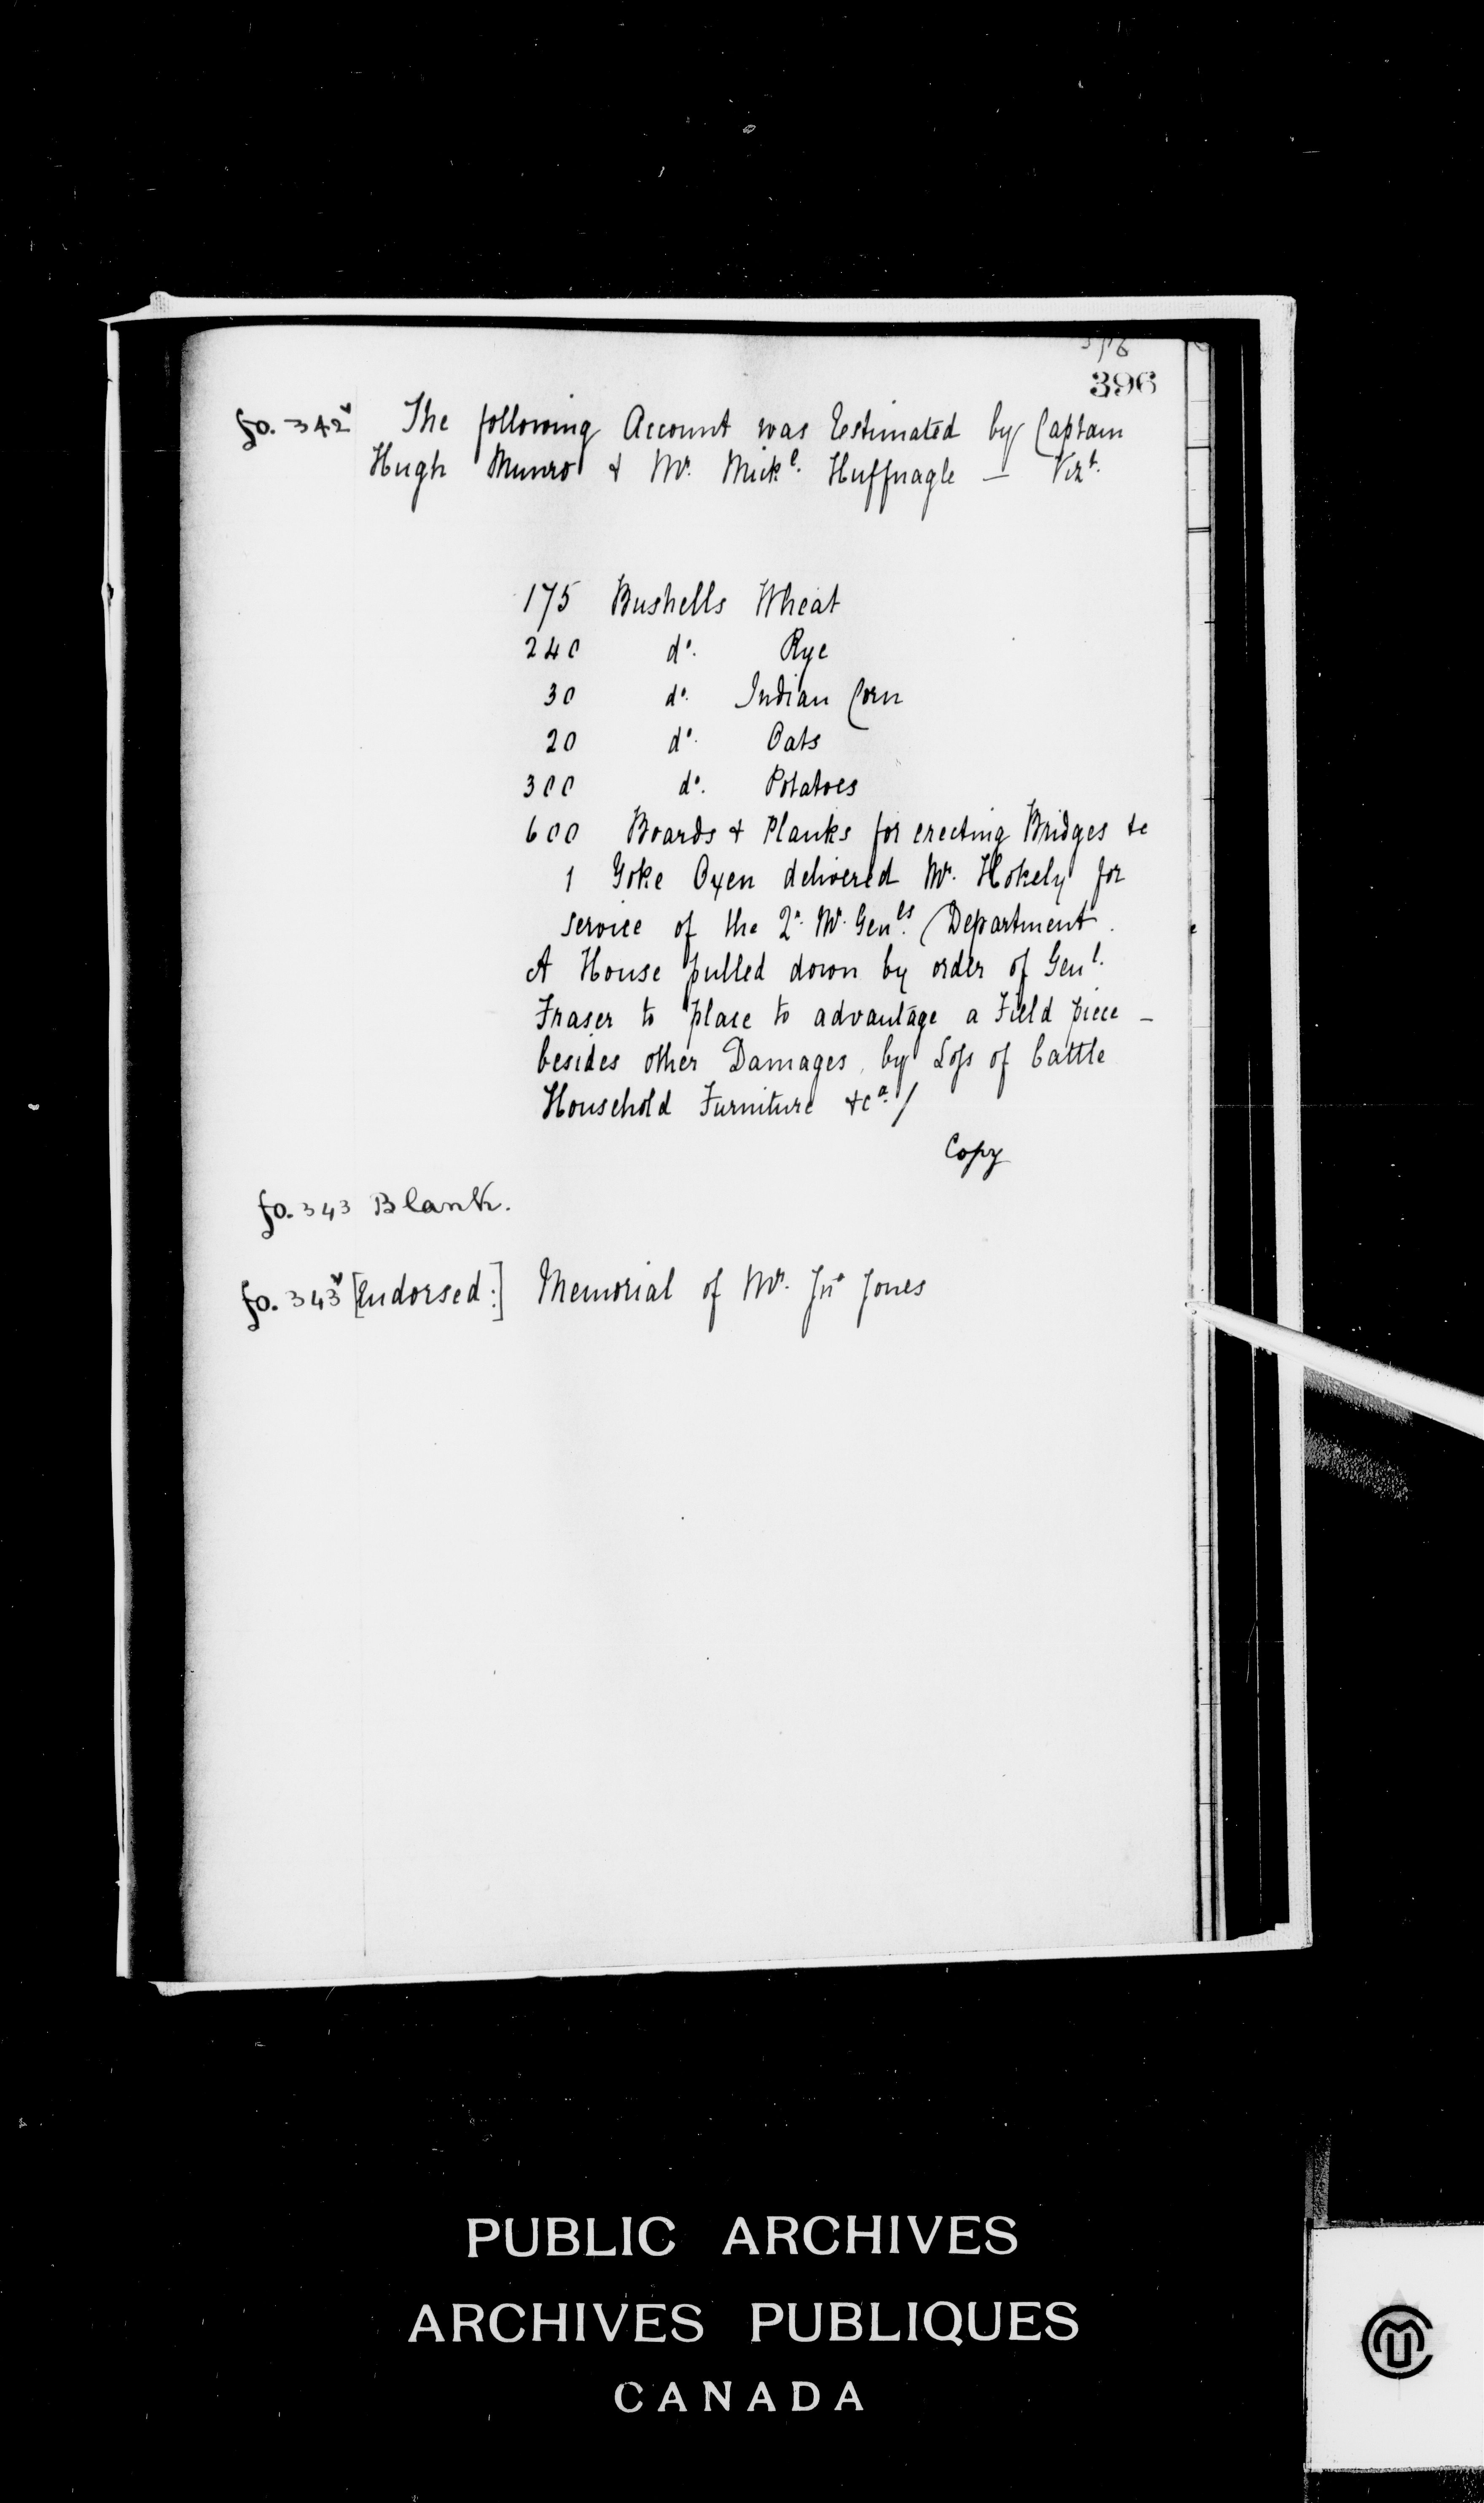 396
fo. 342v The following Account was Estimated by Captain
Hugh Munro & Mr. Mickl. Huffnagle — Vizt.
175 Bushells Wheat
240 do. Rye
30 do. Indian Corn
20 do. Oats
300 do. Potatoes
600 Boards & Planks for erecting Bridges &c
1 Yoke Oxen delivered Mr. Hokely for
service of the Qr. Mr. Genls. Department.
A House pulled down by order of Genl.
Fraser to place to advantage a Field piece —
besides other Damages, by Loss of Cattle
Household Furniture &ca. /
Copy
fo. 343 Blank.
fo. 343v [Endorsed:] Memorial of Mr. Jno Jones
PUBLIC ARCHIVES
ARCHIVES PUBLIQUES
CANADA